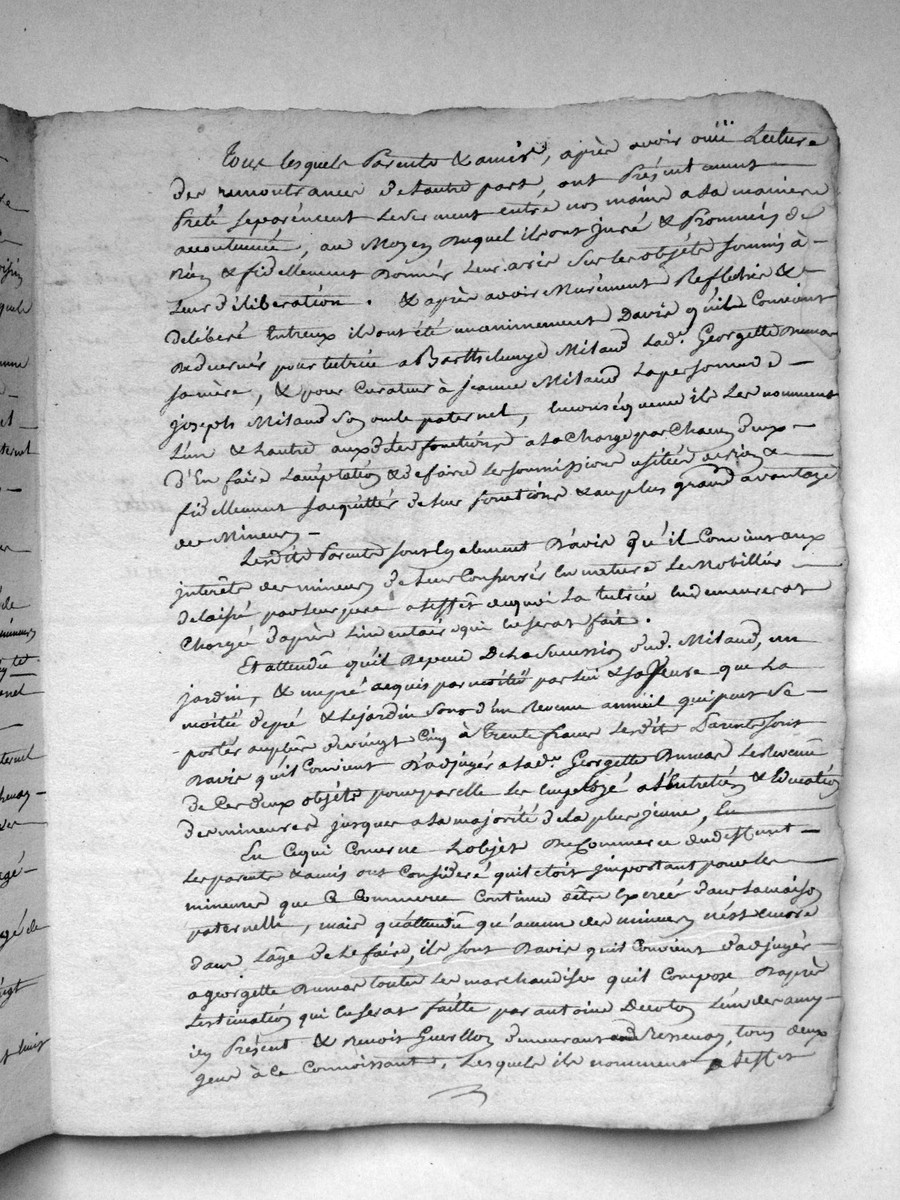 Tous lesquels Parents & amis, après avoir ouïï Lecture
des remontrances de lautre part, ont Présentement
Preté separément le serment entre nos mains a la maniere
accoutumée, au Moyen Duquel ils ont juré & Promis de
bien & fidellement Donner Leur avis sur les objéts soumis à
Leur déliberation. & après avoir Murement Refléchis &
Déliberé Entreux ils ont été unanimement Davis qu'il Convient
Barthelemye Milaud Lad.e Georgette Dumas
sa mère, & pour Curateur à Jeanne Milaud la personne de
joseph Milaud son oncle paternel, En conséquence ils Les nomment
L'un & Lautre auxdites fonctions a la Charge par Chacun deux
D'En faire Lacéptation & de faire les soumissions usitées de bien &
fidellement sacquitter de leurs fonctions & au plus grand avantage
des Mineurs
Lesdits Parents sont Egalement D'avis qu'il Convient aux
interêts des mineurs de Leur Conserver En nature Le Mobillier
délaissé par leur pere a leffet dequoi La tutrice En demeurerat
Chargé d'après Linventaire qui En serat fait.
Et attendu qu'il Dépend De la Succession dud. Milaud, un
jardin, & un pré acquis par moitié par lui & sa que La
moitié du pré & le jardin sont d'un Revenu annuel qui peut se
porter au plus de vingt Cinq à Trente francs Lesdits Parents sont
Davis qu'il Convient D'adjuger a lad.e Georgette Dumas Les Revenus
de Ces deux objéts pour par elle les Employé a l'Entretien & Education
des mineures jusques a la majorité de la plus jeune,
En Cequi Concerne Lobjet De Commerce dudeffunt
Les parents & amis ont Consideré quil etoit important pour les
mineures que Ce Commerce Continue dêtre Exercé dans la maison
paternelle, mais qu'attendu qu'aucun des mineurs n'est Encore
dans L'âge de Le faire, ils sont D'avis quil Convient d'adjuger
a georgette Dumas toutes Les marchandises quil Compose Daprès
Lestimation qui En serat faitte par antoine L'un des amys
icy Présent & Benoit demeurant tous deux
gens à ce Connoissant, Lesquels ils nomment a leffet